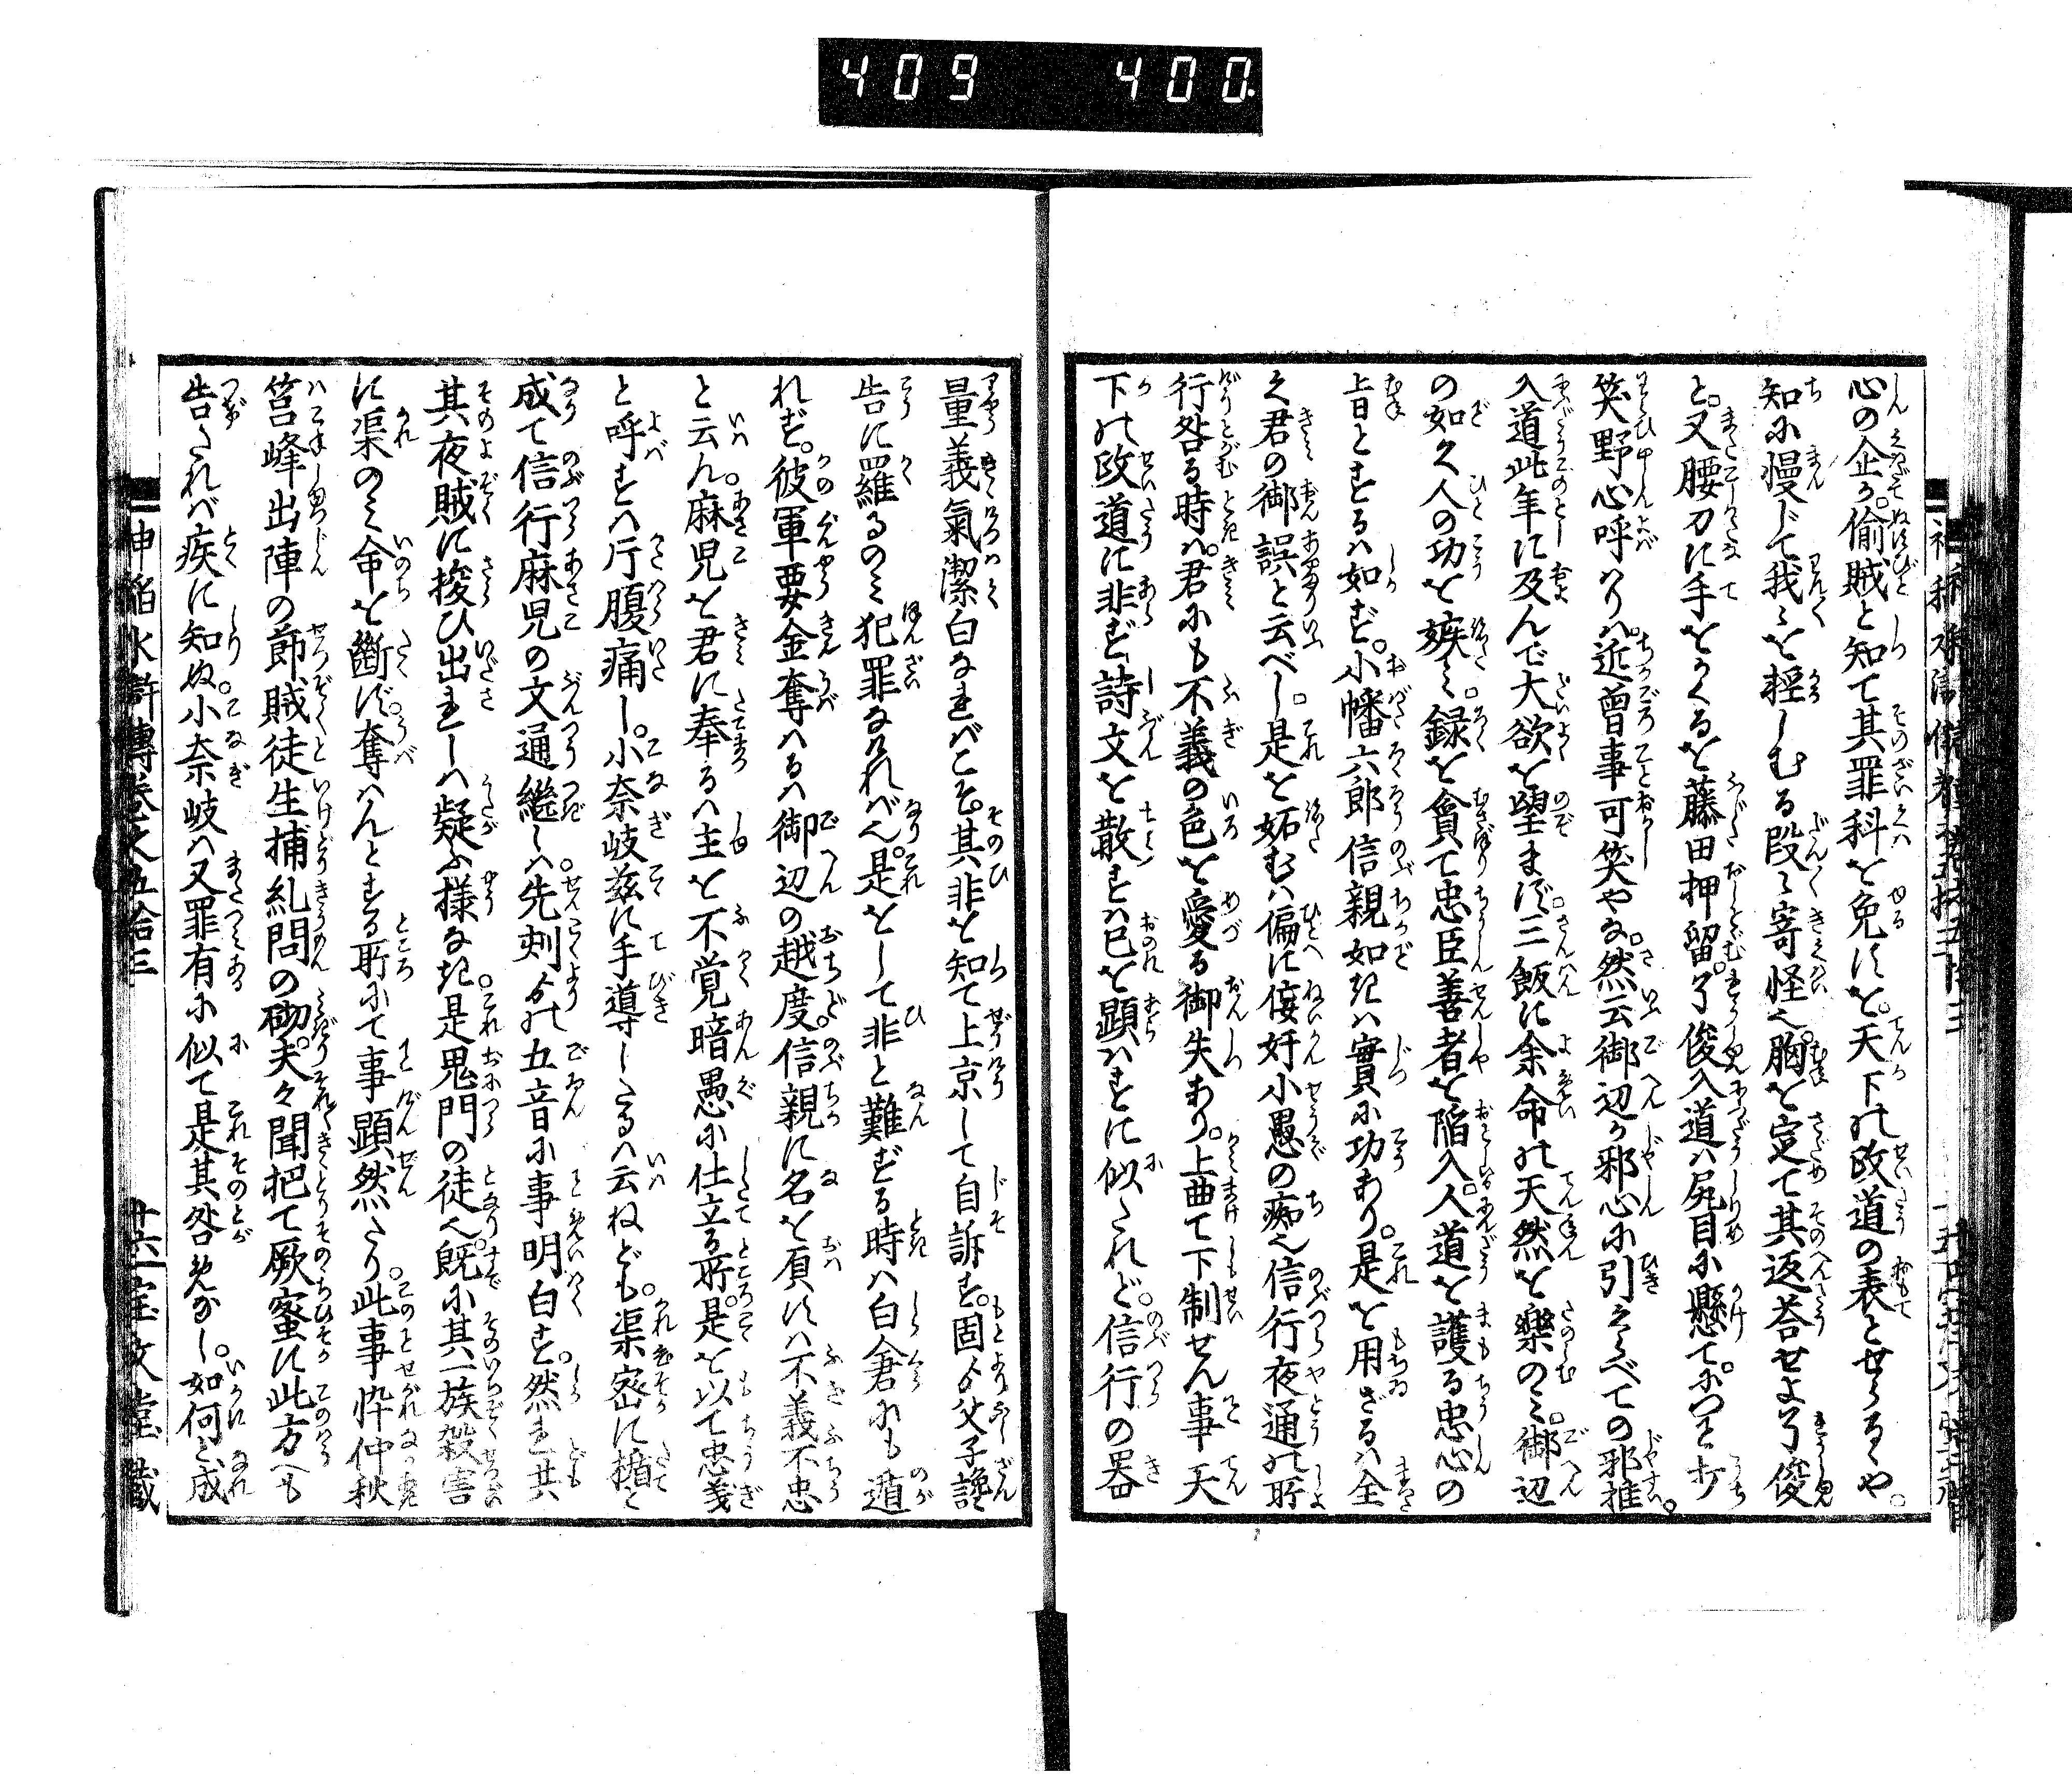 409 400
心の企か。偷賊と知て其罪科を免にを。天下の政道の表とせらるゝや。
知に慢じて我々を軽しむる段々寄怪也。胸を定て其返答せよ了俊
と。又腰刀に手をかくるを藤田押留。了俊入道ハ尻目に懸て。かつと打
笑野心呼りハ。近曽事可笑やな。然云御辺が邪心に引くらべての邪推。
入道此年に及んで大欲を望まず。三飯に余命の天然を樂のミ。御辺
の如く人の功を嫉ミ。録を貪て忠臣善者を陥入。人道を護る忠心の
旨とするハ如ず。小幡六郎信親如きハ實に功あり。是を用ざるハ全
く君の御誤と云べし。是を妬むハ偏に侫奸小愚の痴也。信行夜通の所
行咎る時ハ。君にも不義の色を愛る御失あり。上曲て下制せん事天
下の政道に非ず。詩文を散ずハ己を顕ハすに似たれど。信行の器
量義氣潔白なればこそ。其非を知て上京して自訴す。固より父子讒
告に羅るのミ犯罪なければ也。是をして非と難ずる時ハ白倉にも遁
れず。彼軍要金奪ハるハ御辺の越度。信親に名を負にハ不義不忠
と云ん。麻児を君に奉るハ主を不覚暗愚に仕立る所。是を以て忠義
と呼ずハ片腹痛し。小奈岐茲に手導したるハ云ねども。渠密に楯と
成て信行麻児の文通継しハ。先刺よの五音に事明白す。然ま共
其夜賊に掠ひ出ましハ疑ふ様なき。是鬼門の徒也。既に其一族殺害
に渠のミ命を斷ず。奪ハんとする所にて事顕然たり。此事忰仲秋
筥峰出陣の節賊徒生捕糺問の砌。夫々聞把て厥蜜に此方へも
告たれば疾に知ぬ。小奈岐ハ又罪有に似て是其咎めなし。如何に成
神稲水滸傳巻之五拾三
廿六 宝文堂藏